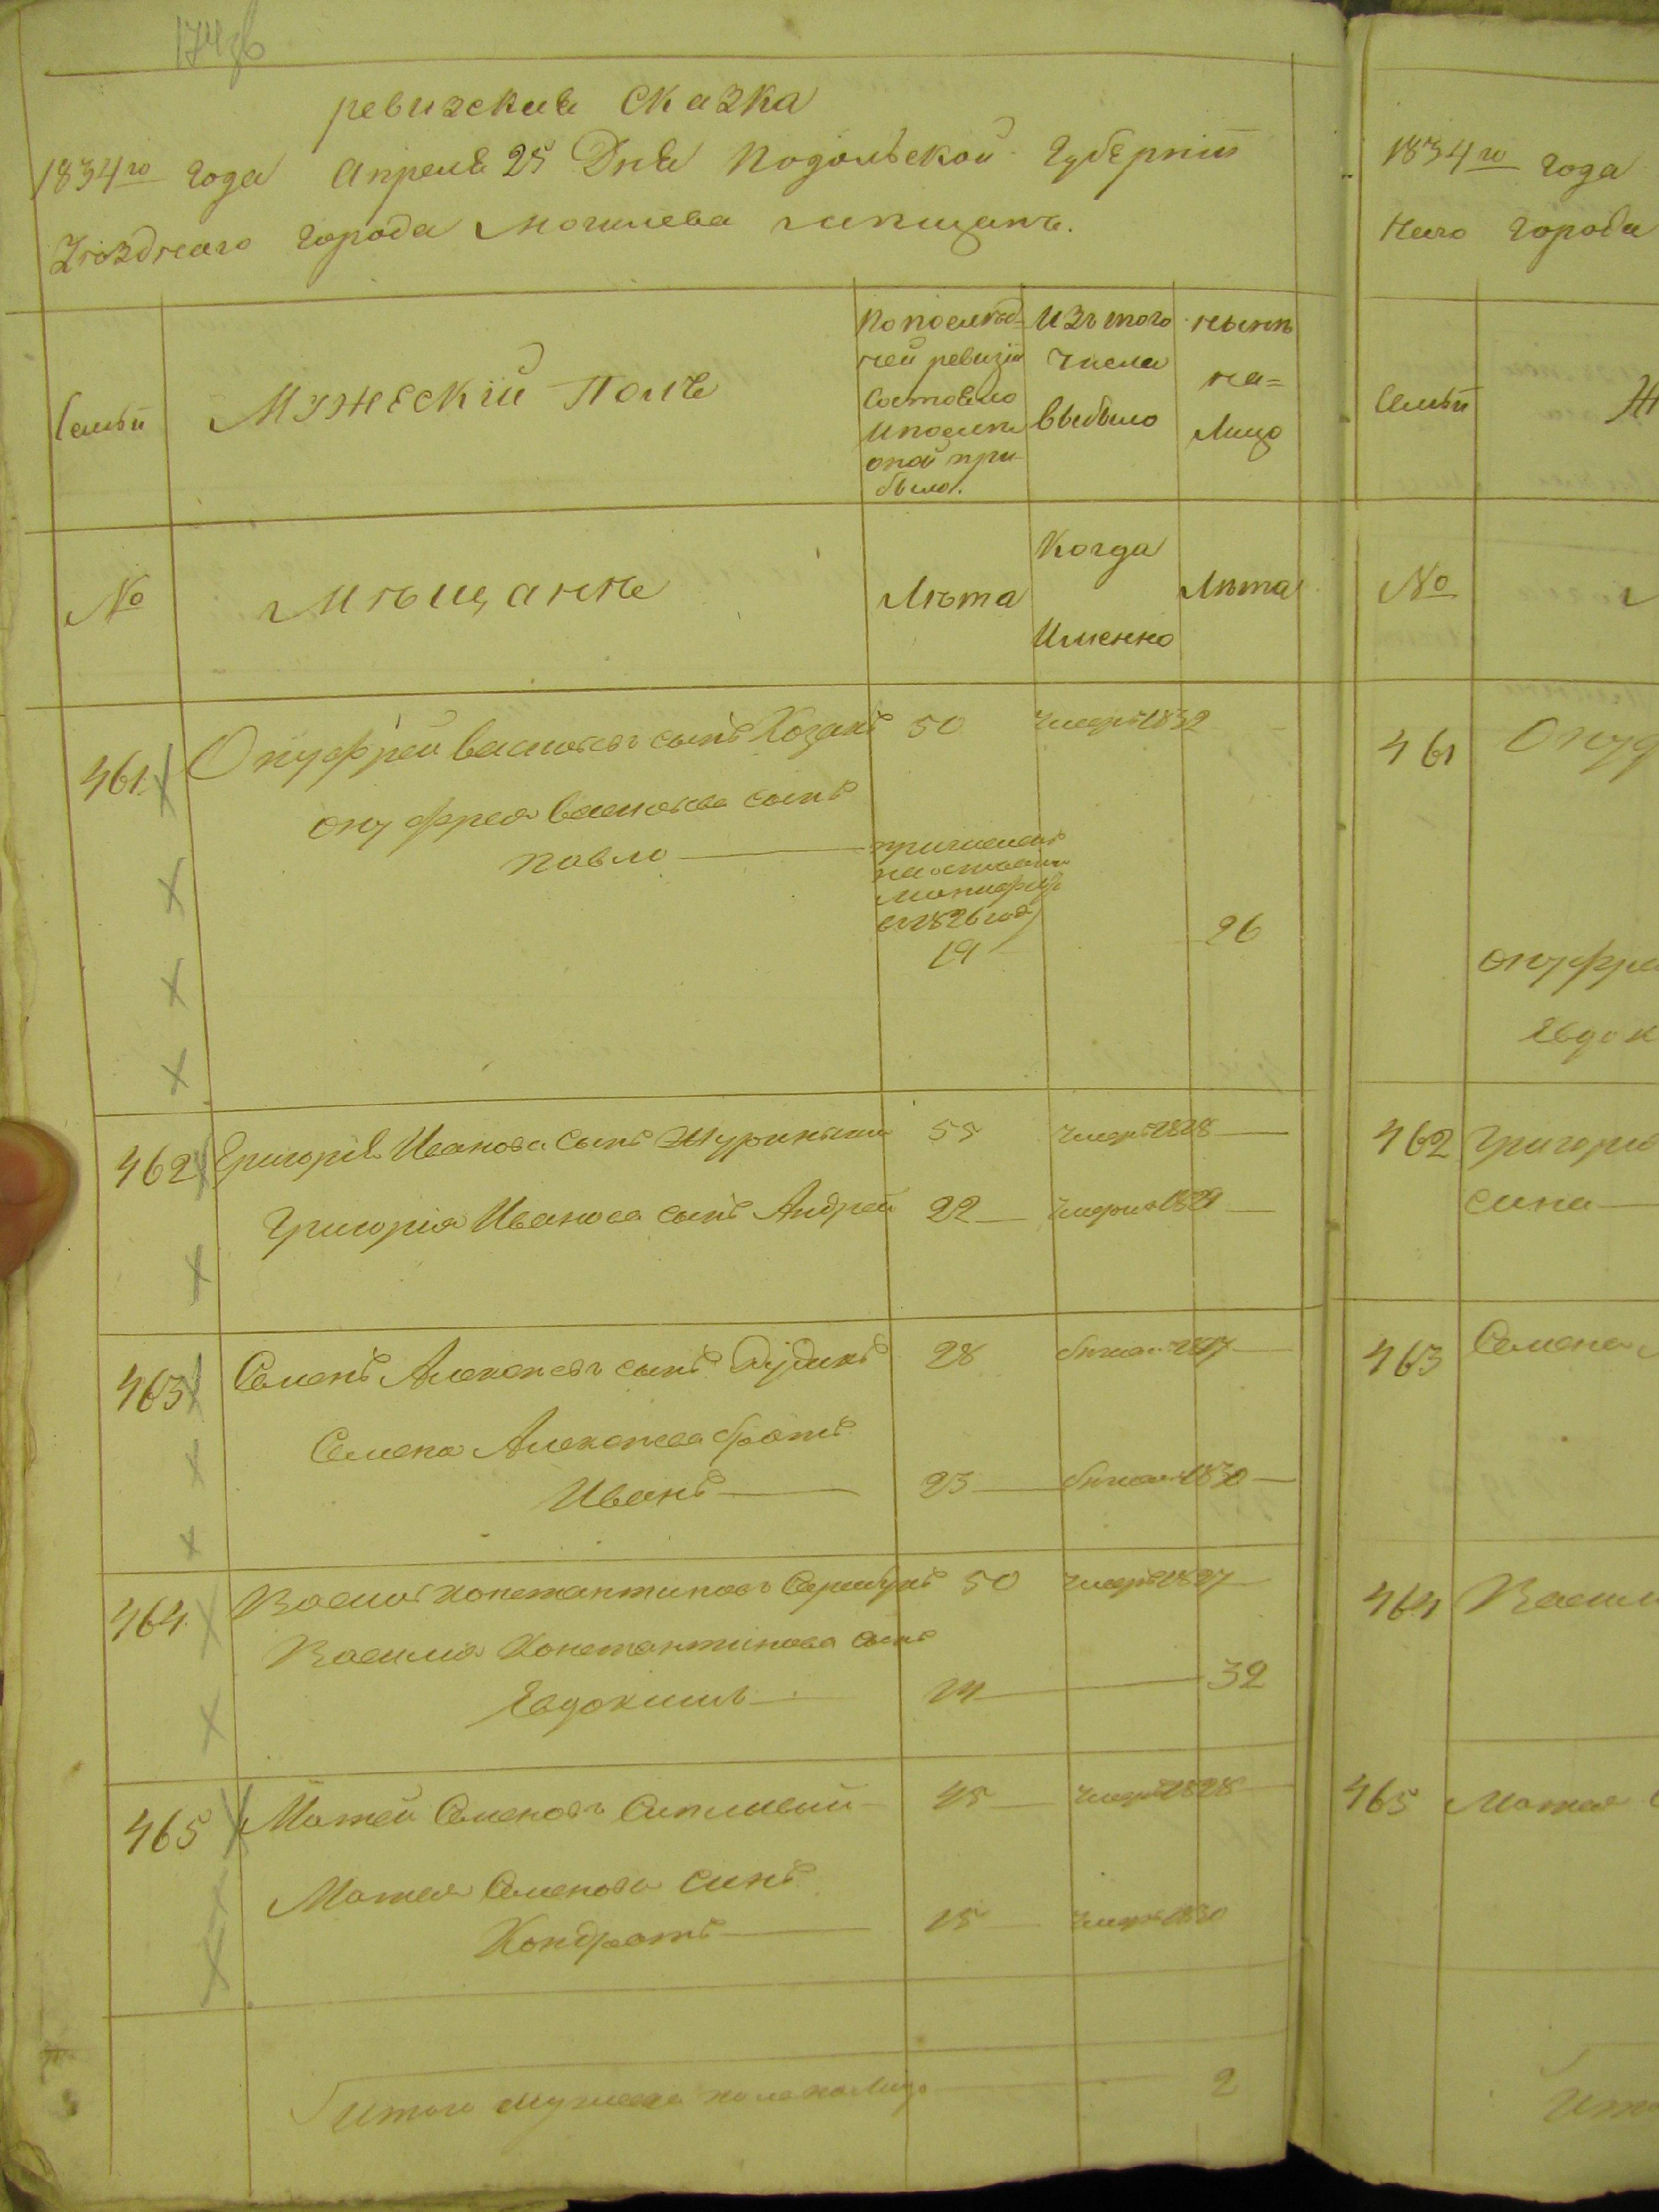 174об
ревизская Сказка
1834го Года Апреля 25 Дня Подольской Губернiи
Уѣзднаго Города Могилева мѣщанъ.
Семьи
Мужескiй Полъ
По послѣд-
ней ревизiи
Состояло
и послѣ
оной при-
было.
Изъ того
числа
выбыло
нынѣ
на=
Лицо
№
Мѣщанѣ
Лѣта
Когда
Именно
Лѣта
461
Онуфрей Васильевъ сынъ Козакъ 50 умеръ 1832
Онуфрея Васильева сынъ
Павло
1826 год
19 26
462 Григорiй Иванова Сынъ 55 умеръ 1828
Григорiя Иванова сынъ Андрей 22 умеръ 1829
463 Семенъ Алексѣевъ сынъ Дудикъ 28
Семена Алексѣева братъ
Иванъ 23 1830
464 Василiй Константиновъ 50 умеръ 1827
Василiя Константинова сынъ
Евдокимъ 24 32
465 Матѣй Семеновъ 45 умеръ 1828
Матѣя Семенова Синъ
Кондратъ 15 умеръ 1830
Итого мужеска пола налицо 2
1834го Года
наго Города
Семьи
№
461
Онуф
онуфре
Евдок
462 Григорiя
сина
463 Семена
464 Васил
465 Матѣя
Ито